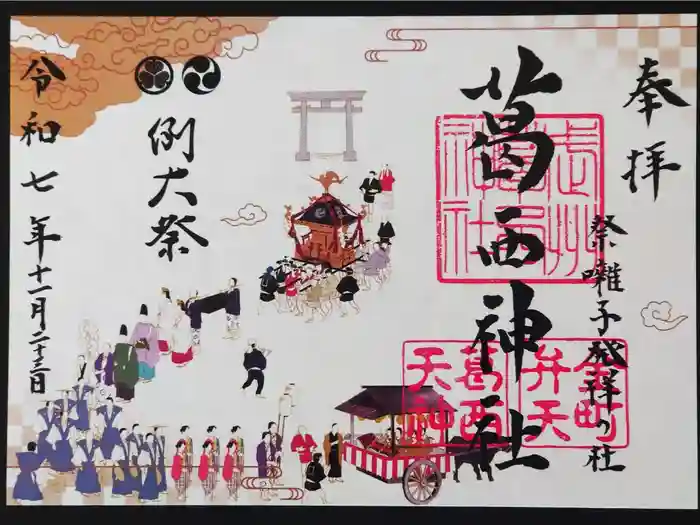 奉拝
祭囃子発祥の社
葛西神社
武州葛西神社
金町
弁天
葛西
天神
例大祭
令和七年十一月二十三日